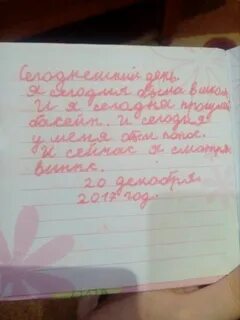 Сегоднешний день.
Я сегодня была в школе
И я сегодня прошла
басейн. И сегодня
у меня
И сейчас я смотрю
20 декабря
2017 год.